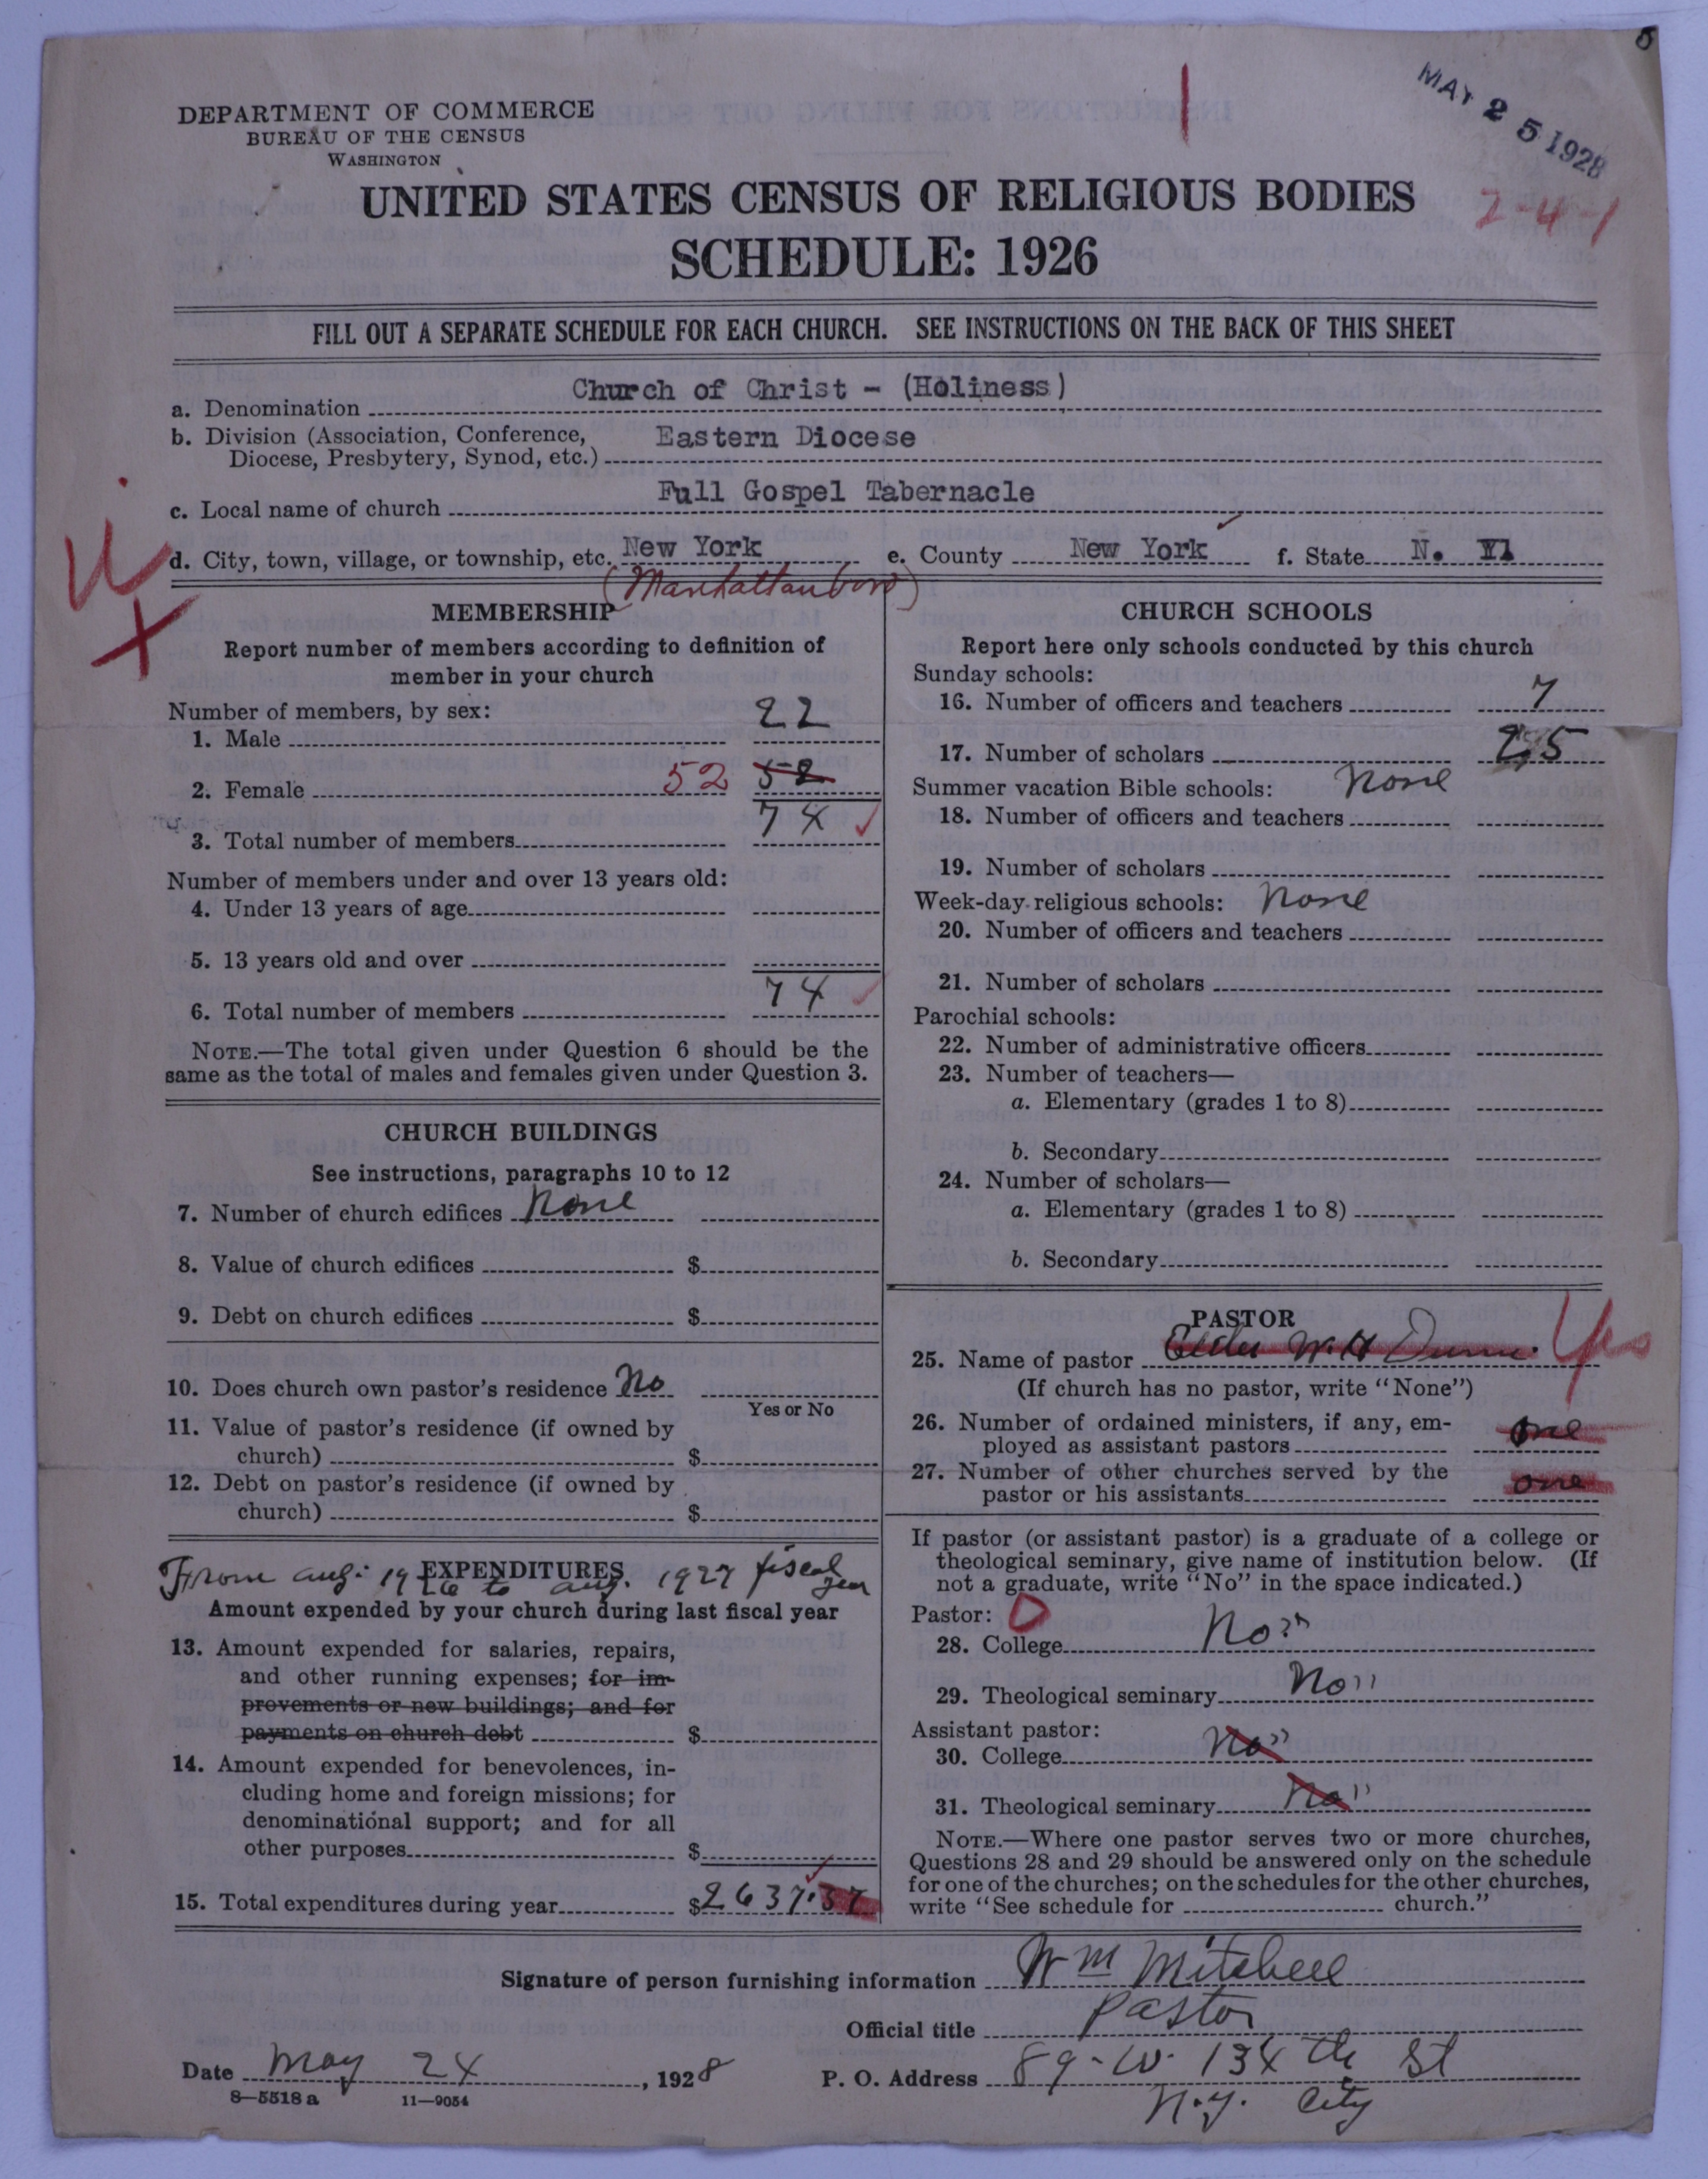 MAY 25 1928
DEPARTMENT OF COMMERCE
BUREAU OF THE CENSUS
WASHINGTON
2-4-1
UNITED STATES CENSUS OF RELIGIOUS BODIES
SCHEDULE: 1926
FILL OUT A SEPARATE SCHEDULE FOR EACH CHURCH. SEE INSTRUCTIONS ON THE BACK OF THIS SHEET
a. Denomination Church of Christ - (Holiness)
b. Division (Association, Conference, Eastern Diocese
Diocese, Presbytery, Synod, etc.)
c. Local name of church Full Gospel Tabernacle
d. City, town, village, or township, etc. New York e. County New York f. State N. Y
(Manhattan boro)
MEMBERSHIP
Report number of members according to definition of
member in your church
Number of members, by sex:
1. Male 22
2. Female 52 52
3. Total number of members 74
Number of members under and over 13 years old:
4. Under 13 years of age
5. 13 years old and over
6. Total number of members 74
NOTE.—The total given under Question 6 should be the
same as the total of males and females given under Question 3.
CHURCH BUILDINGS
See instructions, paragraphs 10 to 12
7. Number of church edifices None
8. Value of church edifices $
9. Debt on church edifices $
10. Does church own pastor's residence No
Yes or No
11. Value of pastor's residence (if owned by
church) $
12. Debt on pastor's residence (if owned by
church) $
EXPENDITURES
From aug. 1926 to aug. 1927 fiscal
year
Amount expended by your church during last fiscal year
13. Amount expended for salaries, repairs,
and other running expenses; for im-
provements or new buildings; and for
payments on church debt $
14. Amount expended for benevolences, in-
cluding home and foreign missions; for
denominational support; and for all
other purposes $
15. Total expenditures during year $2637.37
CHURCH SCHOOLS
Report here only schools conducted by this church
Sunday schools:
16. Number of officers and teachers 7
17. Number of scholars 25
Summer vacation Bible schools: None
18. Number of officers and teachers
19. Number of scholars
Week-day religious schools: None
20. Number of officers and teachers
21. Number of scholars
Parochial schools:
22. Number of administrative officers
23. Number of teachers—
a. Elementary (grades 1 to 8)
b. Secondary
24. Number of scholars—
a. Elementary (grades 1 to 8)
b. Secondary
PASTOR
25. Name of pastor Elder W. H Dunn. Yes
(If church has no pastor, write "None")
26. Number of ordained ministers, if any, em-
ployed as assistant pastors one
27. Number of other churches served by the
pastor or his assistants one
If pastor (or assistant pastor) is a graduate of a college or
theological seminary, give name of institution below. (If
not a graduate, write "No" in the space indicated.)
Pastor: 0
28. College No"
29. Theological seminary No"
Assistant pastor:
30. College No"
31. Theological seminary No"
NOTE.—Where one pastor serves two or more churches,
Questions 28 and 29 should be answered only on the schedule
for one of the churches; on the schedules for the other churches,
write "See schedule for church."
Signature of person furnishing information Wm Mitchell
Official title Pastor
Date May 24, 1928 P. O. Address 89-W. 134th St
N.Y. City
8—5518 a 11—9054